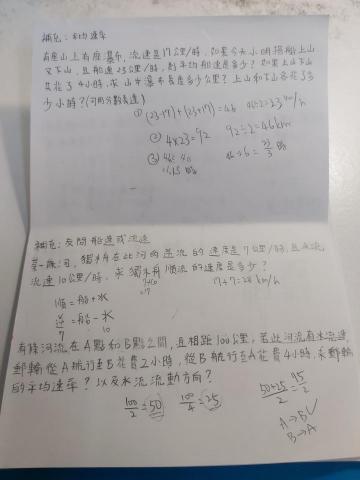 補充:平均速率
有座山上有座瀑布,流速是17公里/時,如果今天小明搭船上山
又下山,且船速23公里/時,對平均船速是多少?如果上山下山
共花了4小時,求山中瀑布長度多少公里?上山和下山各花了多
少小時?(可用分數表達)
① (23-17)+(23+17)=46 46÷2=23 km/h
② 4×23=92 92÷2=46km
③ 46÷40
=1.15 時
46÷6=23/3 時
補充:反問船速或流速
某一條河,獨木舟在此河的逆流的速度是7公里/時,且水流
流速10公里/時,求獨木舟順流的速度是多少?
7+10
=17
17+7=24 km/h
順=船+水
逆=船-水
7 10
有條河流在A點和B點之間,且相距100公里,若此河流有水流速
郵輪從A航行至B花費2小時,從B航行至A花費4小時,求郵輪
的平均速率?以及水流流動方向?
100/2=50 100/4=25
50+25/2=75/2
A→B✓
B→A